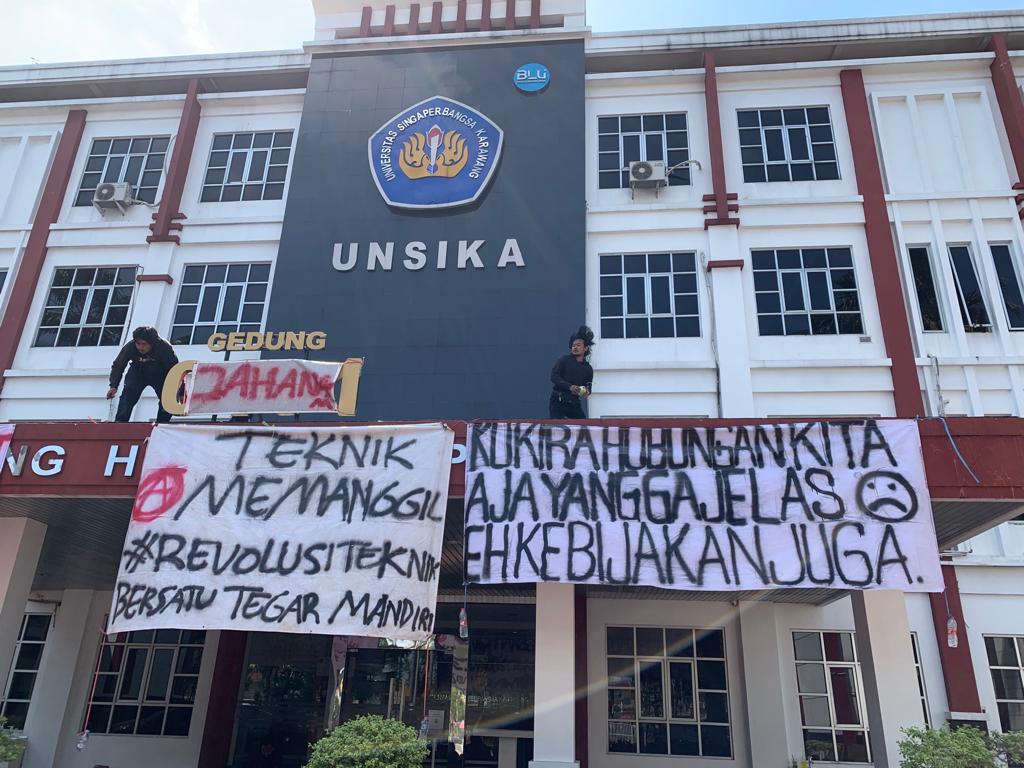 BLU
UNIVERSITAS SINGAPERBANGSA KARAWANG
UNSIKA
GEDUNG
JAHANAM
NG H
TEKNIK
MEMANGGIL
#REVOLUSITEKNIK
BERSATU TEGAR MANDIRI
KUKIRA HUBUNGAN KITA
AJA YANG GA JELAS
EH KEBIJAKAN JUGA.